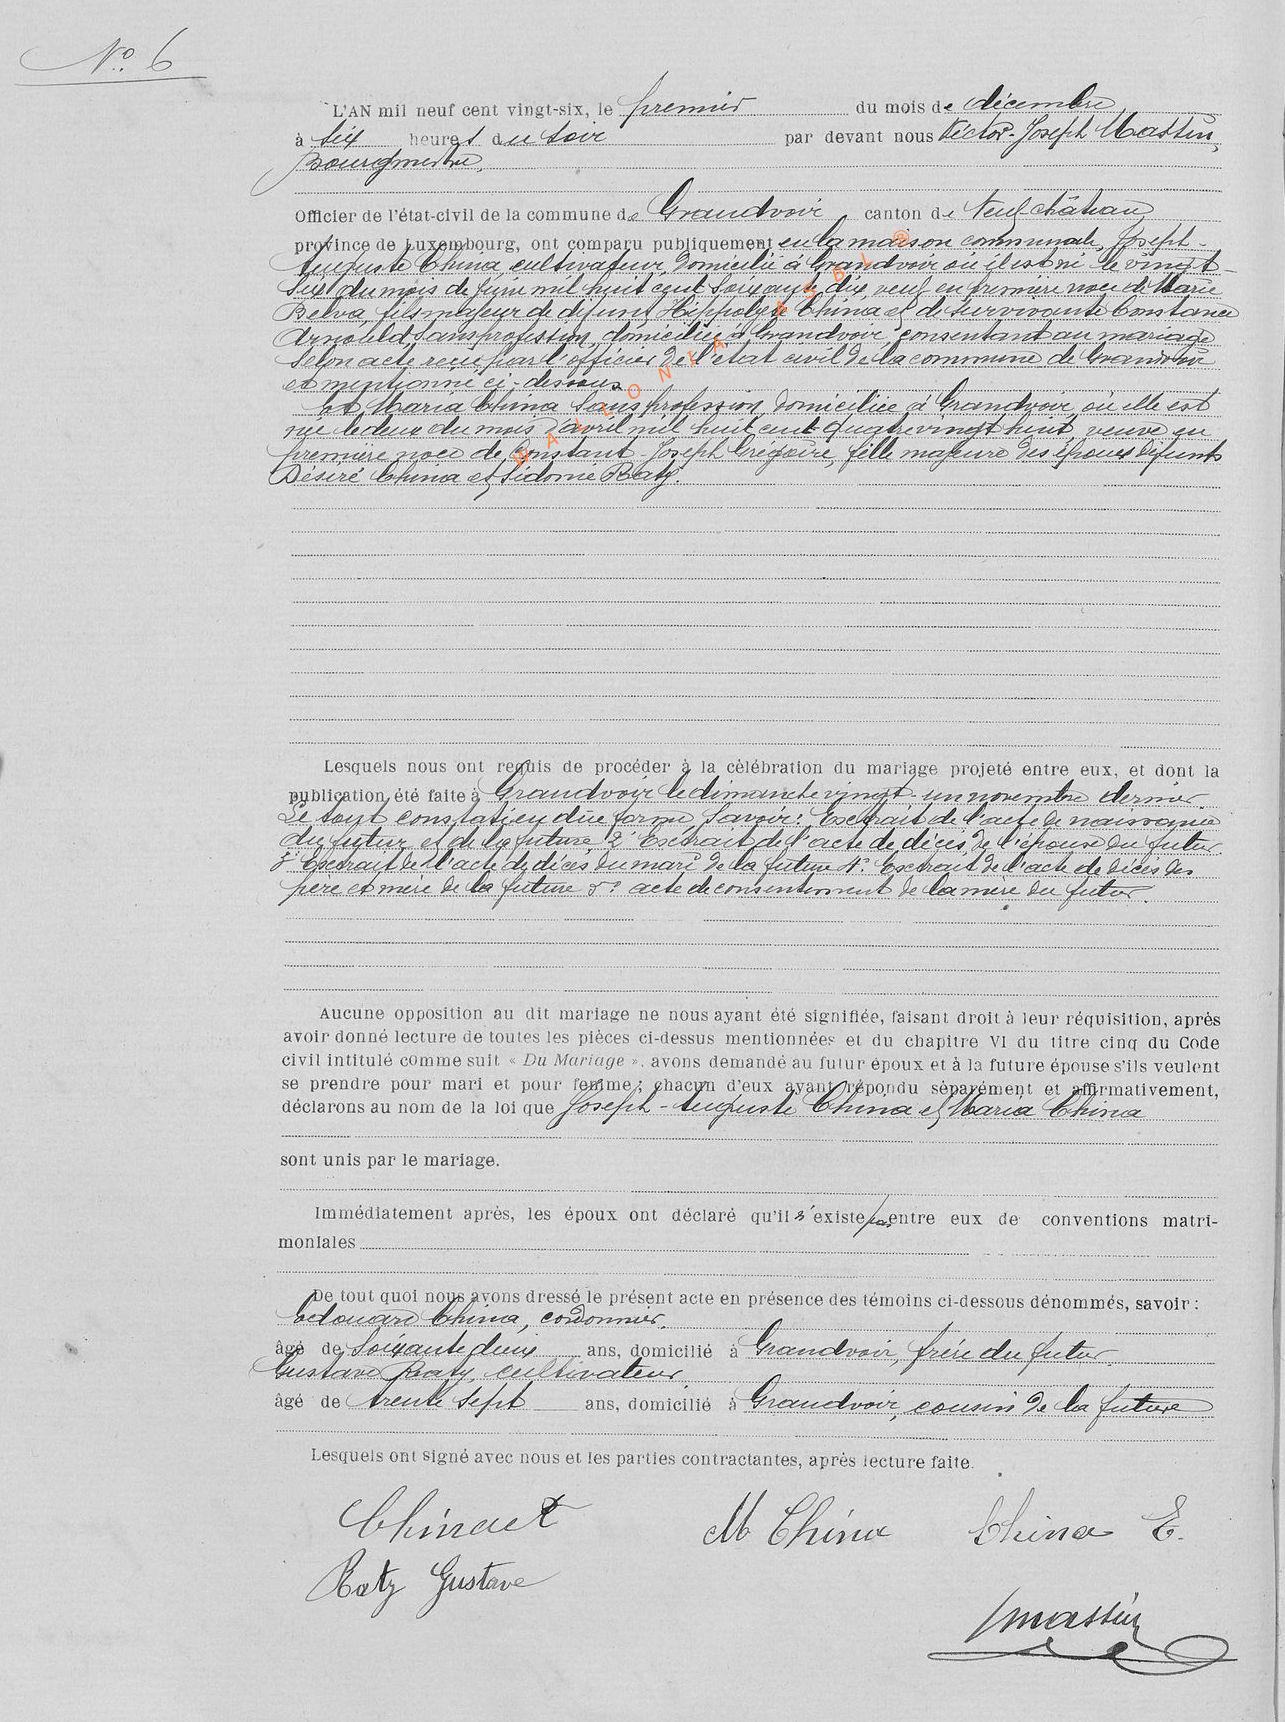 N° 6
L'AN mil neuf cent vingt-six, le premier du mois de décembre
à six heures du soir par devant nous Victor-Joseph Massin,
Bourgmestre,
Officier de l'état-civil de la commune de Grandvoir canton de Neufchâteau
province de Luxembourg, ont comparu publiquement en la maison communale, Joseph-
Auguste China, cultivateur, domicilié à Grandvoir où il est né le vingt-
six du mois de juin mil huit cent soixante dix, veuf en première noce de Marie
Belva, fils majeur de défunt Hippolyte China et de survivante Constance
Arnould, sans profession, domiciliée à Grandvoir, consentant au mariage
selon acte reçu par l'officier de l'état civil de la commune de Grandvoir
et mentionné ci-dessous
Et Maria China sans profession, domiciliée à Grandvoir, où elle est
née le deux du mois d'avril mil huit cent quatre vingt huit veuve en
première noce de Constant-Joseph Grégoire, fille majeure des époux défunts
Désiré China et Sidonie Raty.
WALLONIA ASBL ©
Lesquels nous ont requis de procéder à la célébration du mariage projeté entre eux, et dont la
publication été faite à Grandvoir le dimanche vingt-un novembre dernier
Le tout constaté en due forme savoir: Extrait de l'acte de naissance
du futur et de la future 2° Extrait de l'acte de décès de l'épouse du futur
3° Extrait de l'acte de décès du mari de la future 4° Extrait de l'acte de décès des
père et mère de la future 5° acte de consentement de la mère du futur.
Aucune opposition au dit mariage ne nous ayant été signifiée, faisant droit à leur réquisition, après
avoir donné lecture de toutes les pièces ci-dessus mentionnées et du chapitre VI du titre cinq du Code
civil intitulé comme suit « Du Mariage », avons demandé au futur époux et à la future épouse s'ils veulent
se prendre pour mari et pour femme; chacun d'eux ayant répondu séparément et affirmativement,
déclarons au nom de la loi que Joseph-Auguste China et Maria China
sont unis par le mariage.
Immédiatement après, les époux ont déclaré qu'il n'existe pas entre eux de conventions matri-
moniales
De tout quoi nous avons dressé le présent acte en présence des témoins ci-dessous dénommés, savoir :
Edouard China, cordonnier,
âgé de soixante deux ans, domicilié à Grandvoir, frère du futur
Gustave Raty, cultivateur
âgé de trente sept ans, domicilié à Grandvoir, cousin de la future
Lesquels ont signé avec nous et les parties contractantes, après lecture faite.
M China China E.
Raty Gustave
Massin